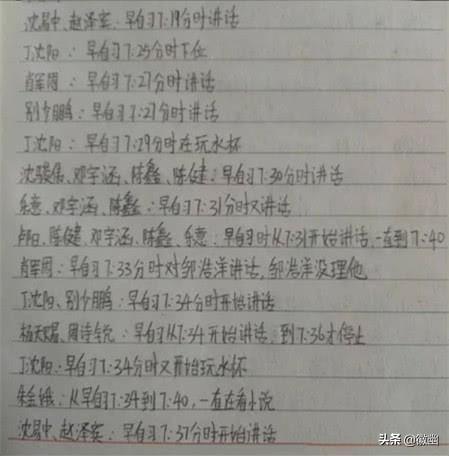 沈易中、赵泽宾：早自习7:19分时讲话
丁沈阳：早自习7:25分时下位
肖军周：早自习7:27分时讲话
别少鹏：早自习7:27分时讲话
丁沈阳：早自习7:29分时在玩水杯
沈骏伟、邓宇涵、陈鑫、陈健：早自习7:30分时讲话
乐意、邓宇涵、陈鑫：早自习7:31分时又讲话
卢阳、陈健、邓宇涵、陈鑫、乐意：早自习时从7:31开始讲话，一直到7:40
肖军周：早自习7:33分时对邹浩洋讲话，邹浩洋没理他
丁沈阳、别少鹏：早自习7:34分时开始讲话
杨天赐、周诗：早自习从7:34开始讲话，到7:36才停止
丁沈阳：早自习7:34分时又开始玩水杯
朱金娥：从早自习7:34到7:40，一直在看小说
沈易中、赵泽宾：早自习7:37分时开始讲话
头条 @徽幽